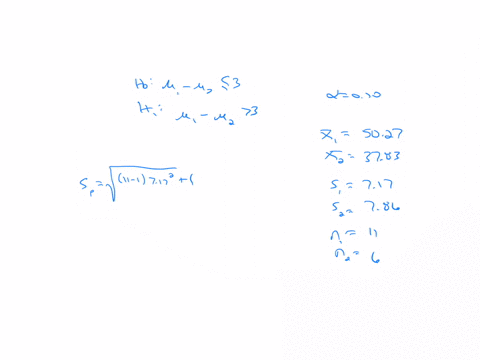 H₀: μ₁ – μ₂ ≤ 3
H₁: μ₁ – μ₂ > 3
α = 0.10
x̄₁ = 50.27
x̄₂ = 37.83
s₁ = 7.17
s₂ = 7.86
n₁ = 11
n₂ = 6
Sₚ = √(11-1) 7.17² + (